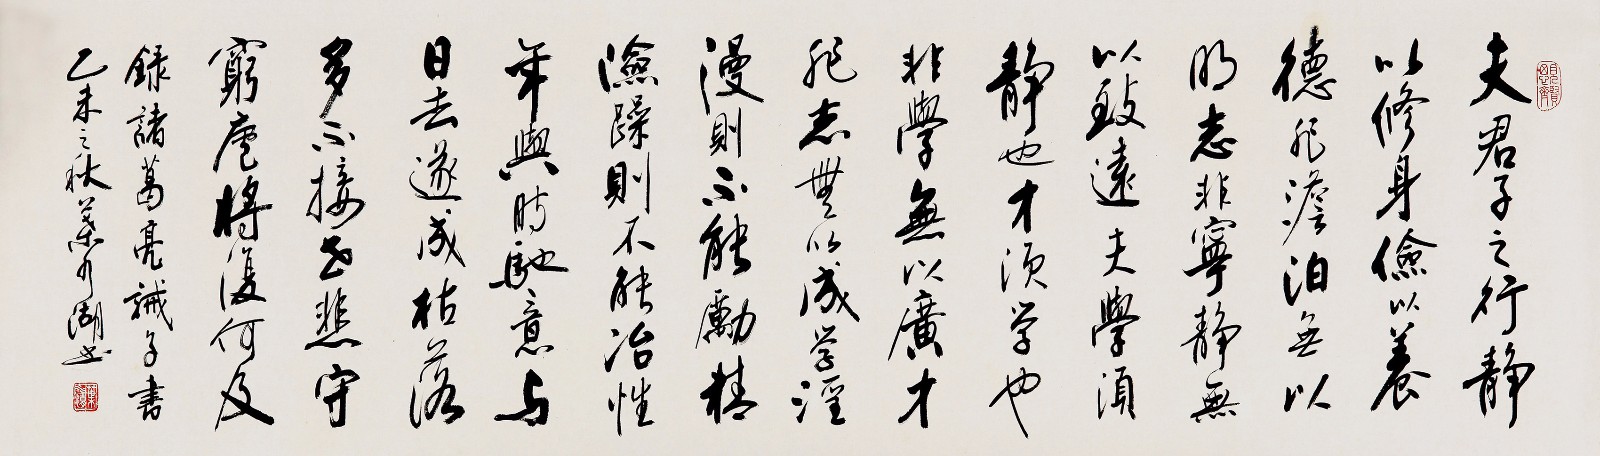 夫君子之行静
以修身儉以養
德非澹泊无以
明志非寧静無
以致遠夫學須
静也才须学也
非學無以廣才
非志無以成学淫
漫則不能勵精
險躁則不能冶性
年與时馳意与
日去遂成枯落
多不接世悲守
窮廬將復何及
錄諸葛亮誡子書
乙未之秋葉水湖书